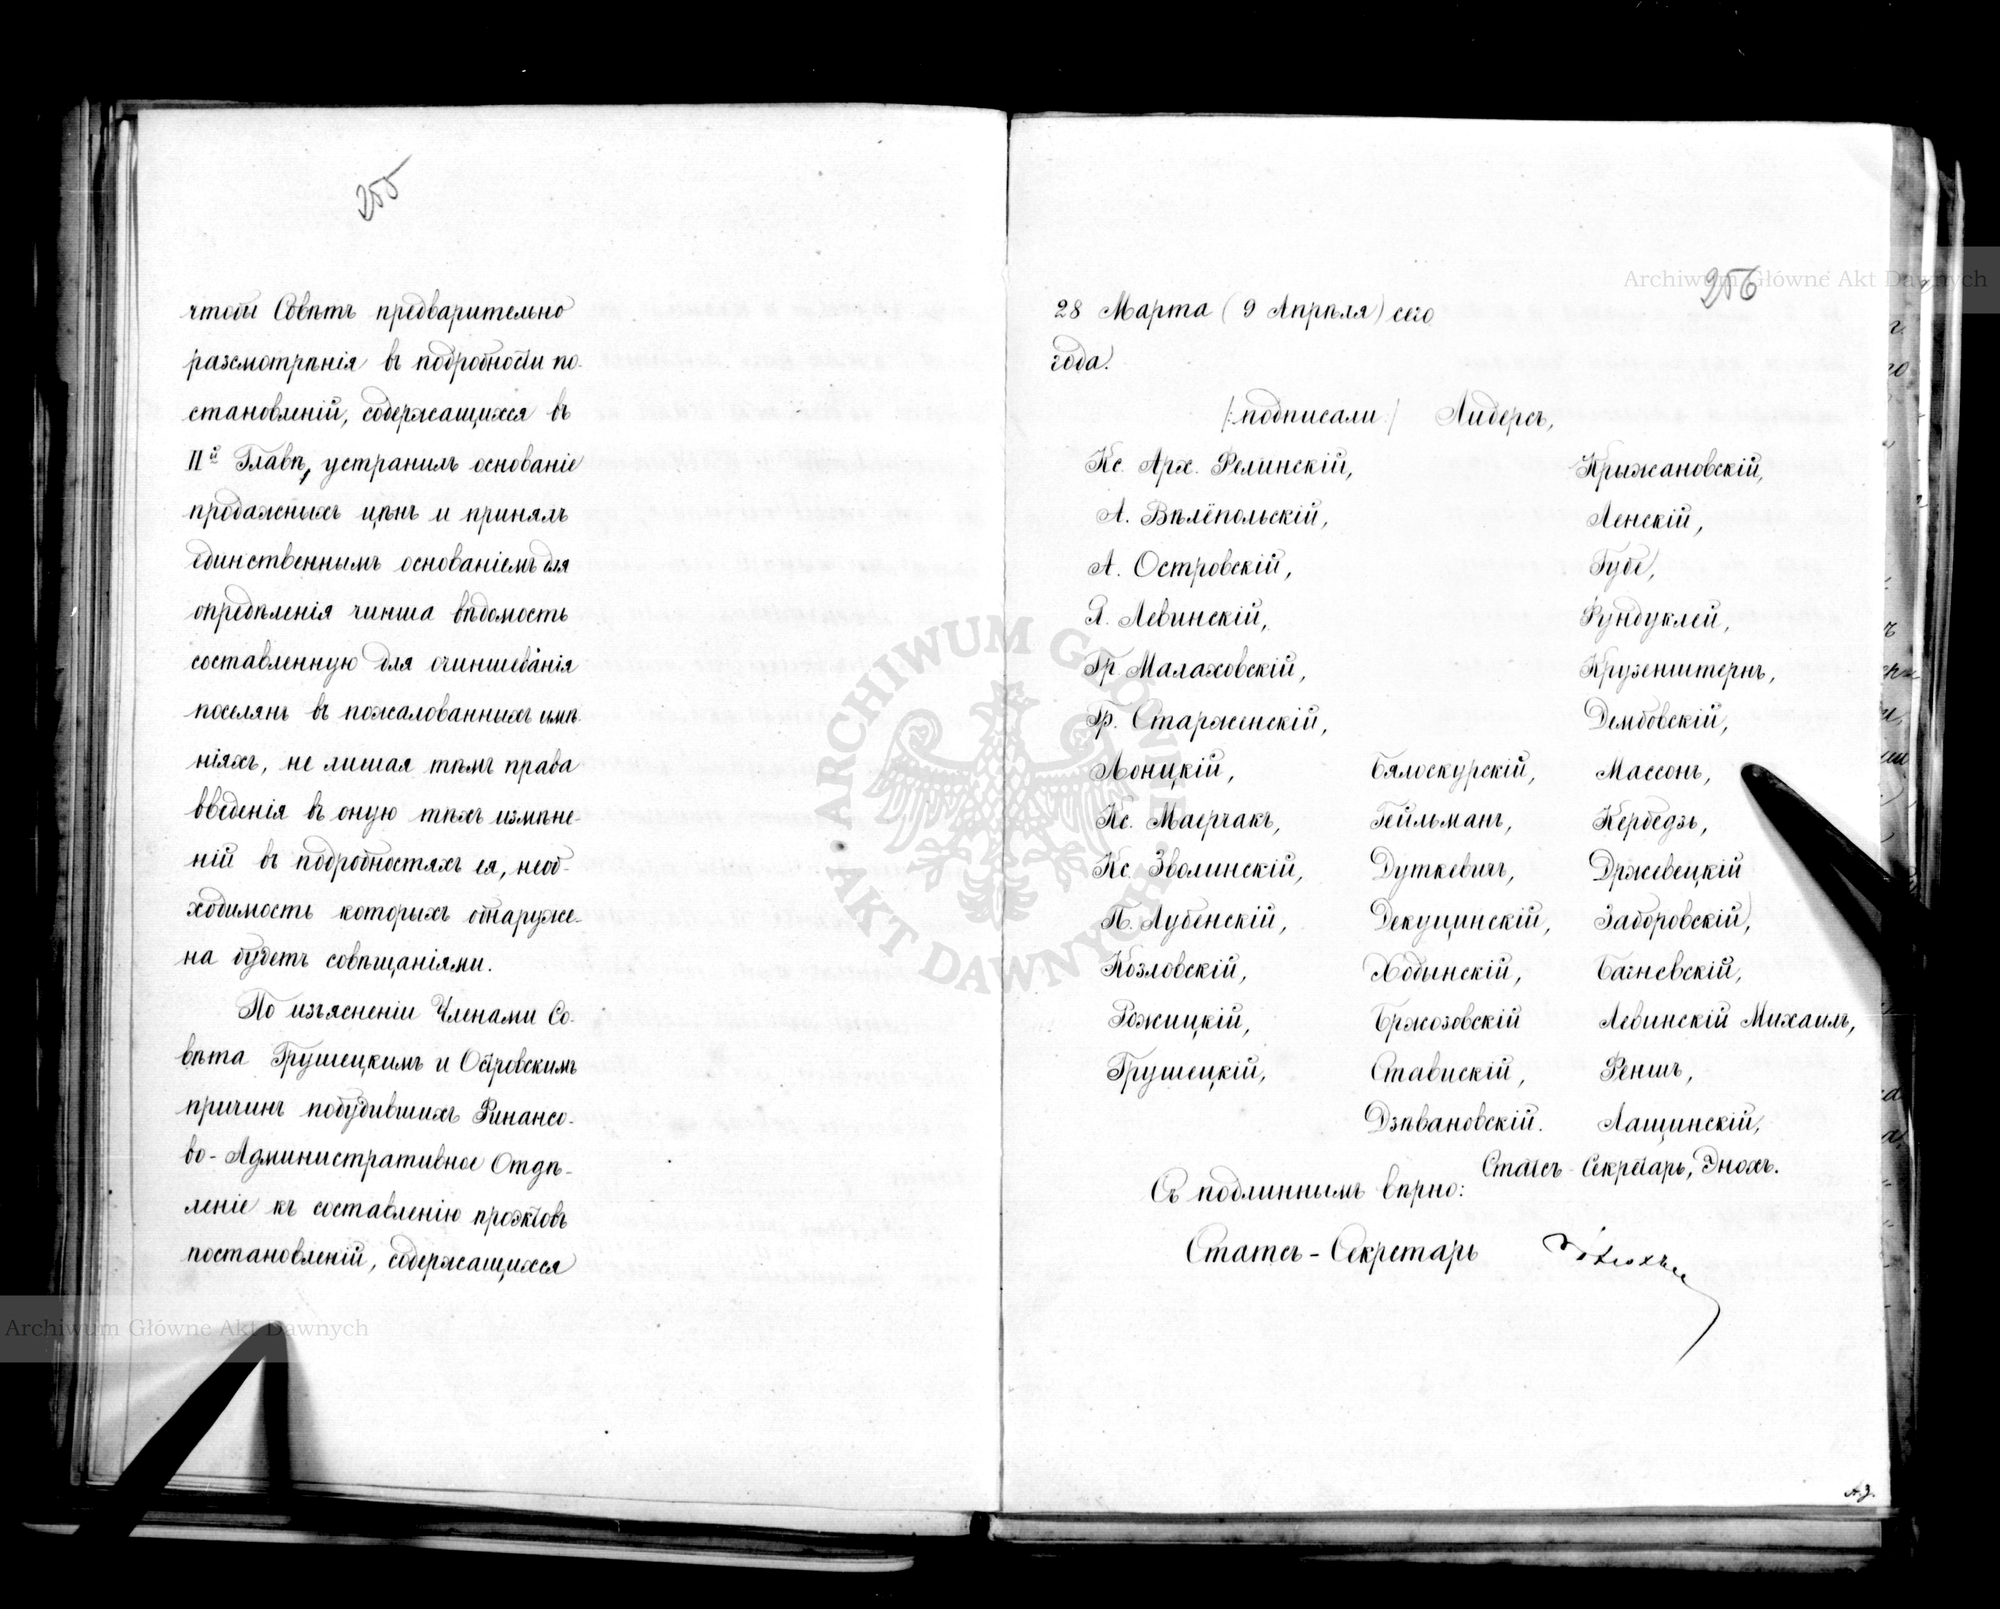 255
чтобы Совѣтъ предварительно
разсмотрѣнія въ подробности по-
становленій, содержащихся въ
IIй Главѣ, устранилъ основаніе
продажныхъ цѣнъ и принялъ
единственнымъ основаніемъ для
опредѣленія чинша вѣдомость
составленную для очиншеванія
поселянъ въ пожалованныхъ имѣ-
ніяхъ, не лишая тѣмъ права
введенія въ оную тѣхъ измѣне-
ній въ подробностяхъ ея, необ-
ходимость которыхъ обнаруже-
на будетъ совѣщаніями.
По изъясненіи Членами Со-
вѣта Грушецкимъ и Островскимъ
причинъ побудившихъ Финансо-
во-Административное Отдѣ-
леніе къ составленію проэктовъ
постановленій, содержащихся
256
28 Марта (9 Апрѣля) сего
года.
/:подписали:/ Лидерсъ,
Кс. Арх. Фелинскій, Крыжановскій,
А. Вѣлёпольскій, Ленскій,
А. Островскій, Губе,
Я. Левинскій, Фундуклей,
Гр. Малаховскій, Крузенштернъ,
Гр. Старженскій, Дембовскій,
Лонцкій, Бялоскурскій, Массонъ,
Кс. Маерчакъ, Гейльманъ, Кербедзь,
Кс. Зволинскій, Дуткевичъ, Држевецкій
П. Лубенскій, Декуцинскій, Заборовскій,
Козловскій, Хобынскій, Багневскій,
Рожицкій, Бржозовскій Левинскій Михаилъ,
Грушецкій, Ставискій, Феншъ,
Дзѣвановскій. Лащинскій,
Статсъ-Секретарь, Энохъ.
Съ подлиннымъ вѣрно:
Статсъ-Секретарь
Archiwum Główne Akt Dawnych
ARCHIWUM GŁÓWNE AKT DAWNYCH
Archiwum Główne Akt Dawnych